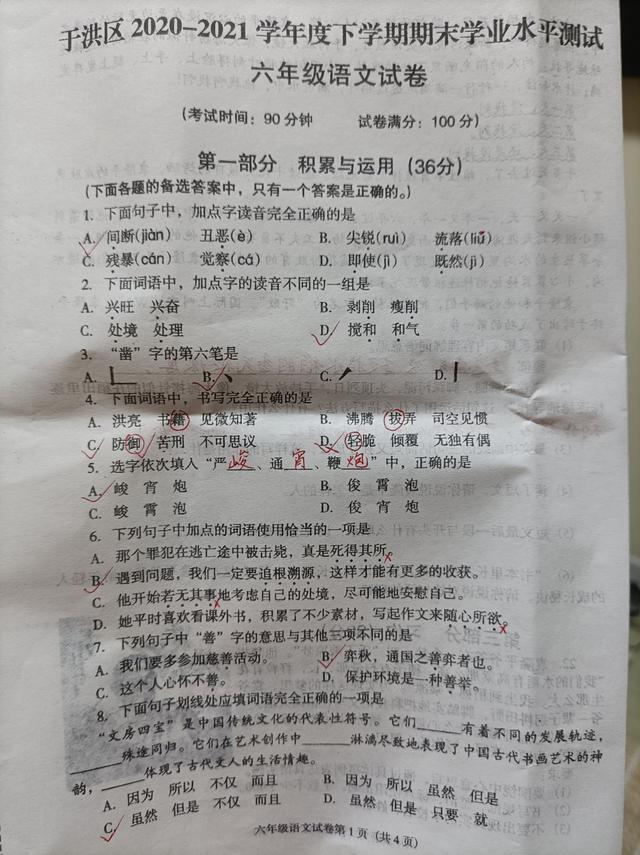 于洪区 2020-2021 学年度下学期期末学业水平测试
六年级语文试卷
(考试时间：90 分钟 试卷满分：100 分)
第一部分 积累与运用 (36分)
(下面各题的备选答案中，只有一个答案是正确的。)
1. 下面句子中，加点字读音完全正确的是
A. 间断(jiàn) 丑恶(è) B. 尖锐(ruì) 流落(liū)
C. 残暴(cán) 觉察(cá) D. 即使(jì) 既然(jì)
2. 下面词语中，加点字的读音不同的一组是
A. 兴旺 兴奋 B. 剥削 瘦削
C. 处境 处理 D. 搅和 和气
3. “凿”字的第六笔是
A. B. C. D.
4. 下面词语中，书写完全正确的是
A. 洪亮 书籍 见微知著 B. 沸腾 拔弄 司空见惯
C. 防御 苦刑 不可思议 D. 轻脆 倾覆 无独有偶
5. 选字依次填入“严峻、通宵、鞭炮”中，正确的是
A. 峻 宵 炮 B. 俊 霄 泡
C. 峻 霄 泡 D. 俊 宵 炮
6. 下列句子中加点的词语使用恰当的一项是
A. 那个罪犯在逃亡途中被击毙，真是死得其所。
B. 遇到问题，我们一定要追根溯源，这样才能有更多的收获。
C. 他开始若无其事地考虑自己的处境，尽可能地安慰自己。
D. 她平时喜欢看课外书，积累了不少素材，写起作文来随心所欲。
7. 下列句子中“善”字的意思与其他三项不同的是
A. 我们要多参加慈善活动。 B. 弈秋，通国之善弈者也。
C. 这个人心怀不善。 D. 保护环境是一种善举。
8. 下面句子划线处应填词语完全正确的一项是
“文房四宝”是中国传统文化的代表性符号。它们______有着不同的发展轨迹，
______殊途同归。它们在艺术创作中______淋漓尽致地表现了中国古代书画艺术的神
韵，______体现了古代文人的生活情趣。
A. 因为 所以 不仅 而且 B. 因为 所以 虽然 但是
C. 虽然 但是 不仅 而且 D. 虽然 但是 只要 就
六年级语文试卷第 1 页 (共 4 页)